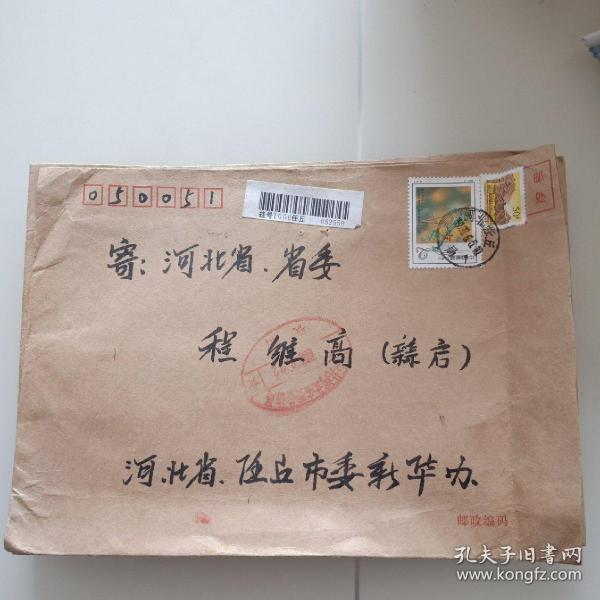 050051
挂号1000任丘 082550
邮处
寄:河北省.省委
程维高(蘇启)
河北省.任丘市委新华办
邮政编码
孔夫子旧书网
www.kongfz.com